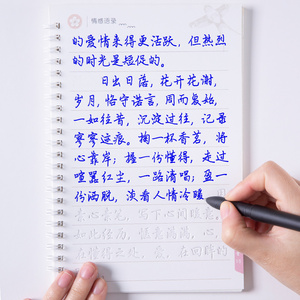 情感语录
的爱情来得更活跃,但热烈
的时光是短促的。
日出日落,花开花谢,
岁月,恪守诺言,周而复始,
一如往昔,沉淀过往,记录
寥寥这痕。掬一怀香茗,将
心靠岸;捻一份懂得,走过
喧嚣红尘,一路清唱,盈一
份洒脱,淡看人情冷暖